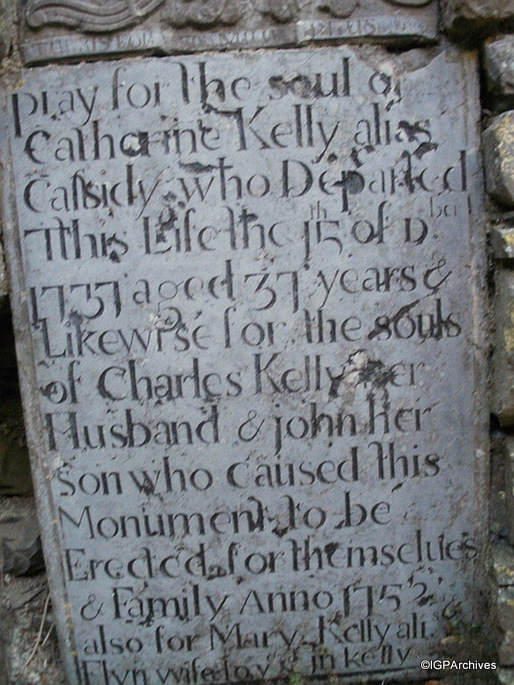 pray for the soul of
Catharine Kelly alias
Cassidy who Departed
This Life the 15th of D:ber
1737 aged 37 years &
Likewise for the souls
of Charles Kelly her
Husband & john her
son who caused this
Monument to be
Erected for themselues
& Family Anno 1752
also for Mary Kelly ali
wife to jn kelly
©IGPArchives